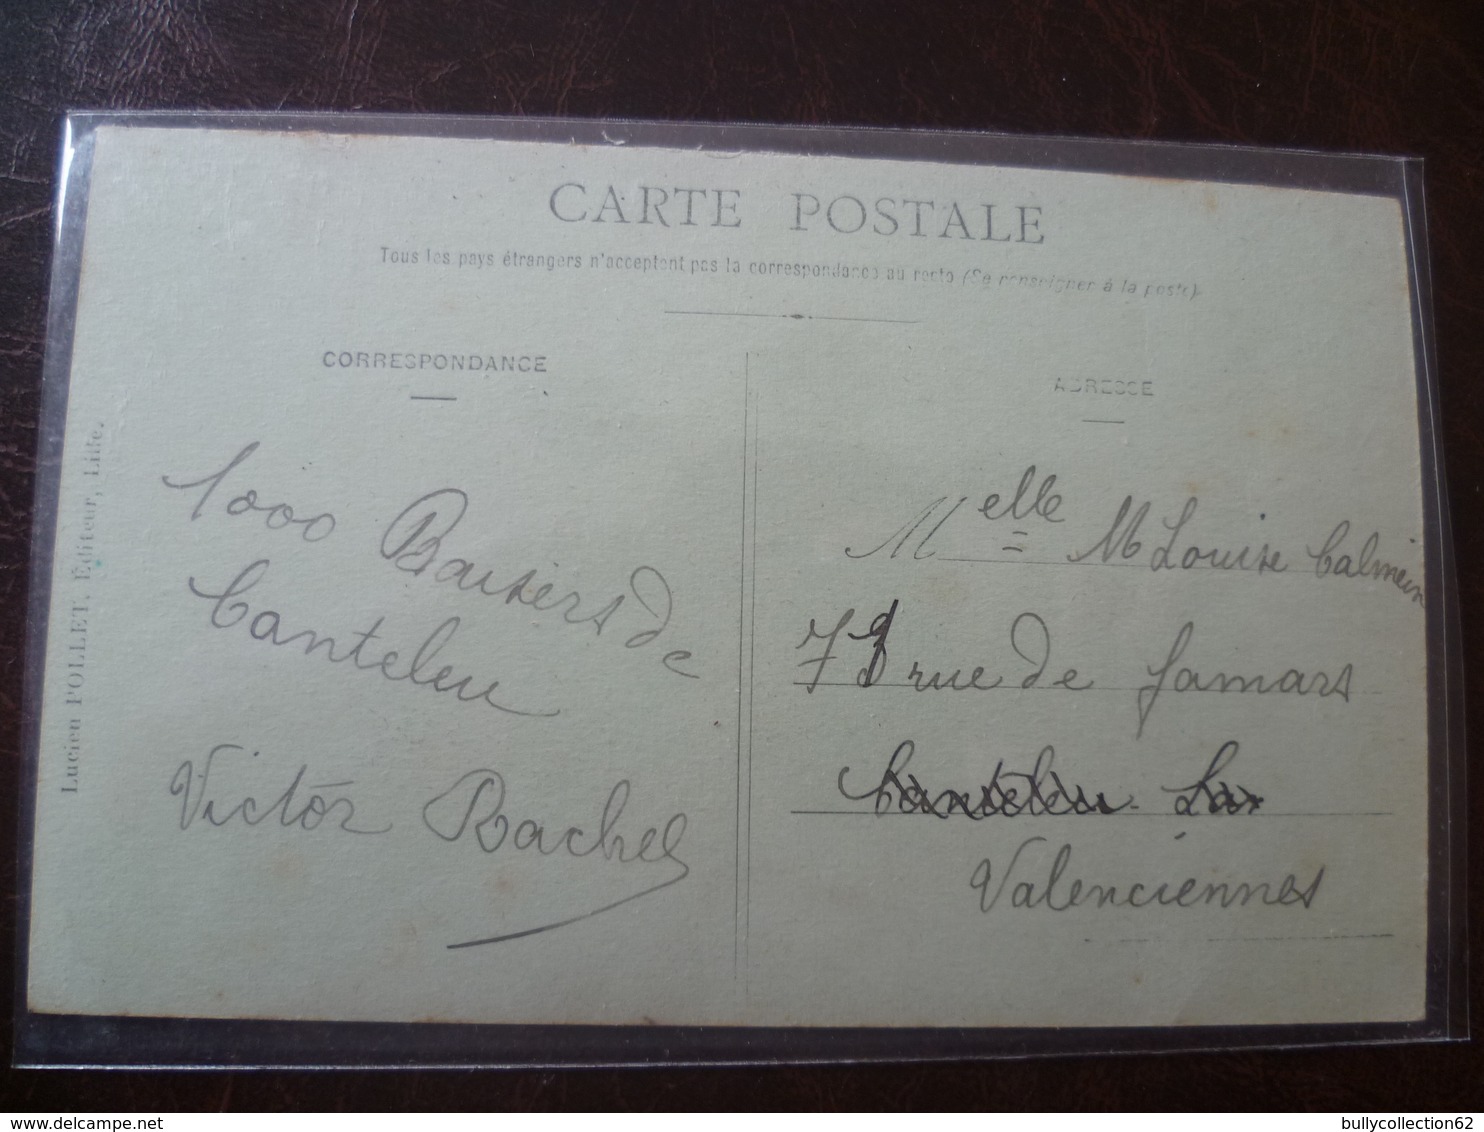 CARTE POSTALE
Tous les pays étrangers n'acceptent pas la correspondance au recto (Se renseigner à la poste).
CORRESPONDANCE
ADRESSE
Lucien POLLET, Éditeur, Lille.
1000 Baisers de
Canteleu
Victor Rachel
Melle M Louise Calmein
rue de Jamars
Canteleu
Valenciennes
bullycollection62